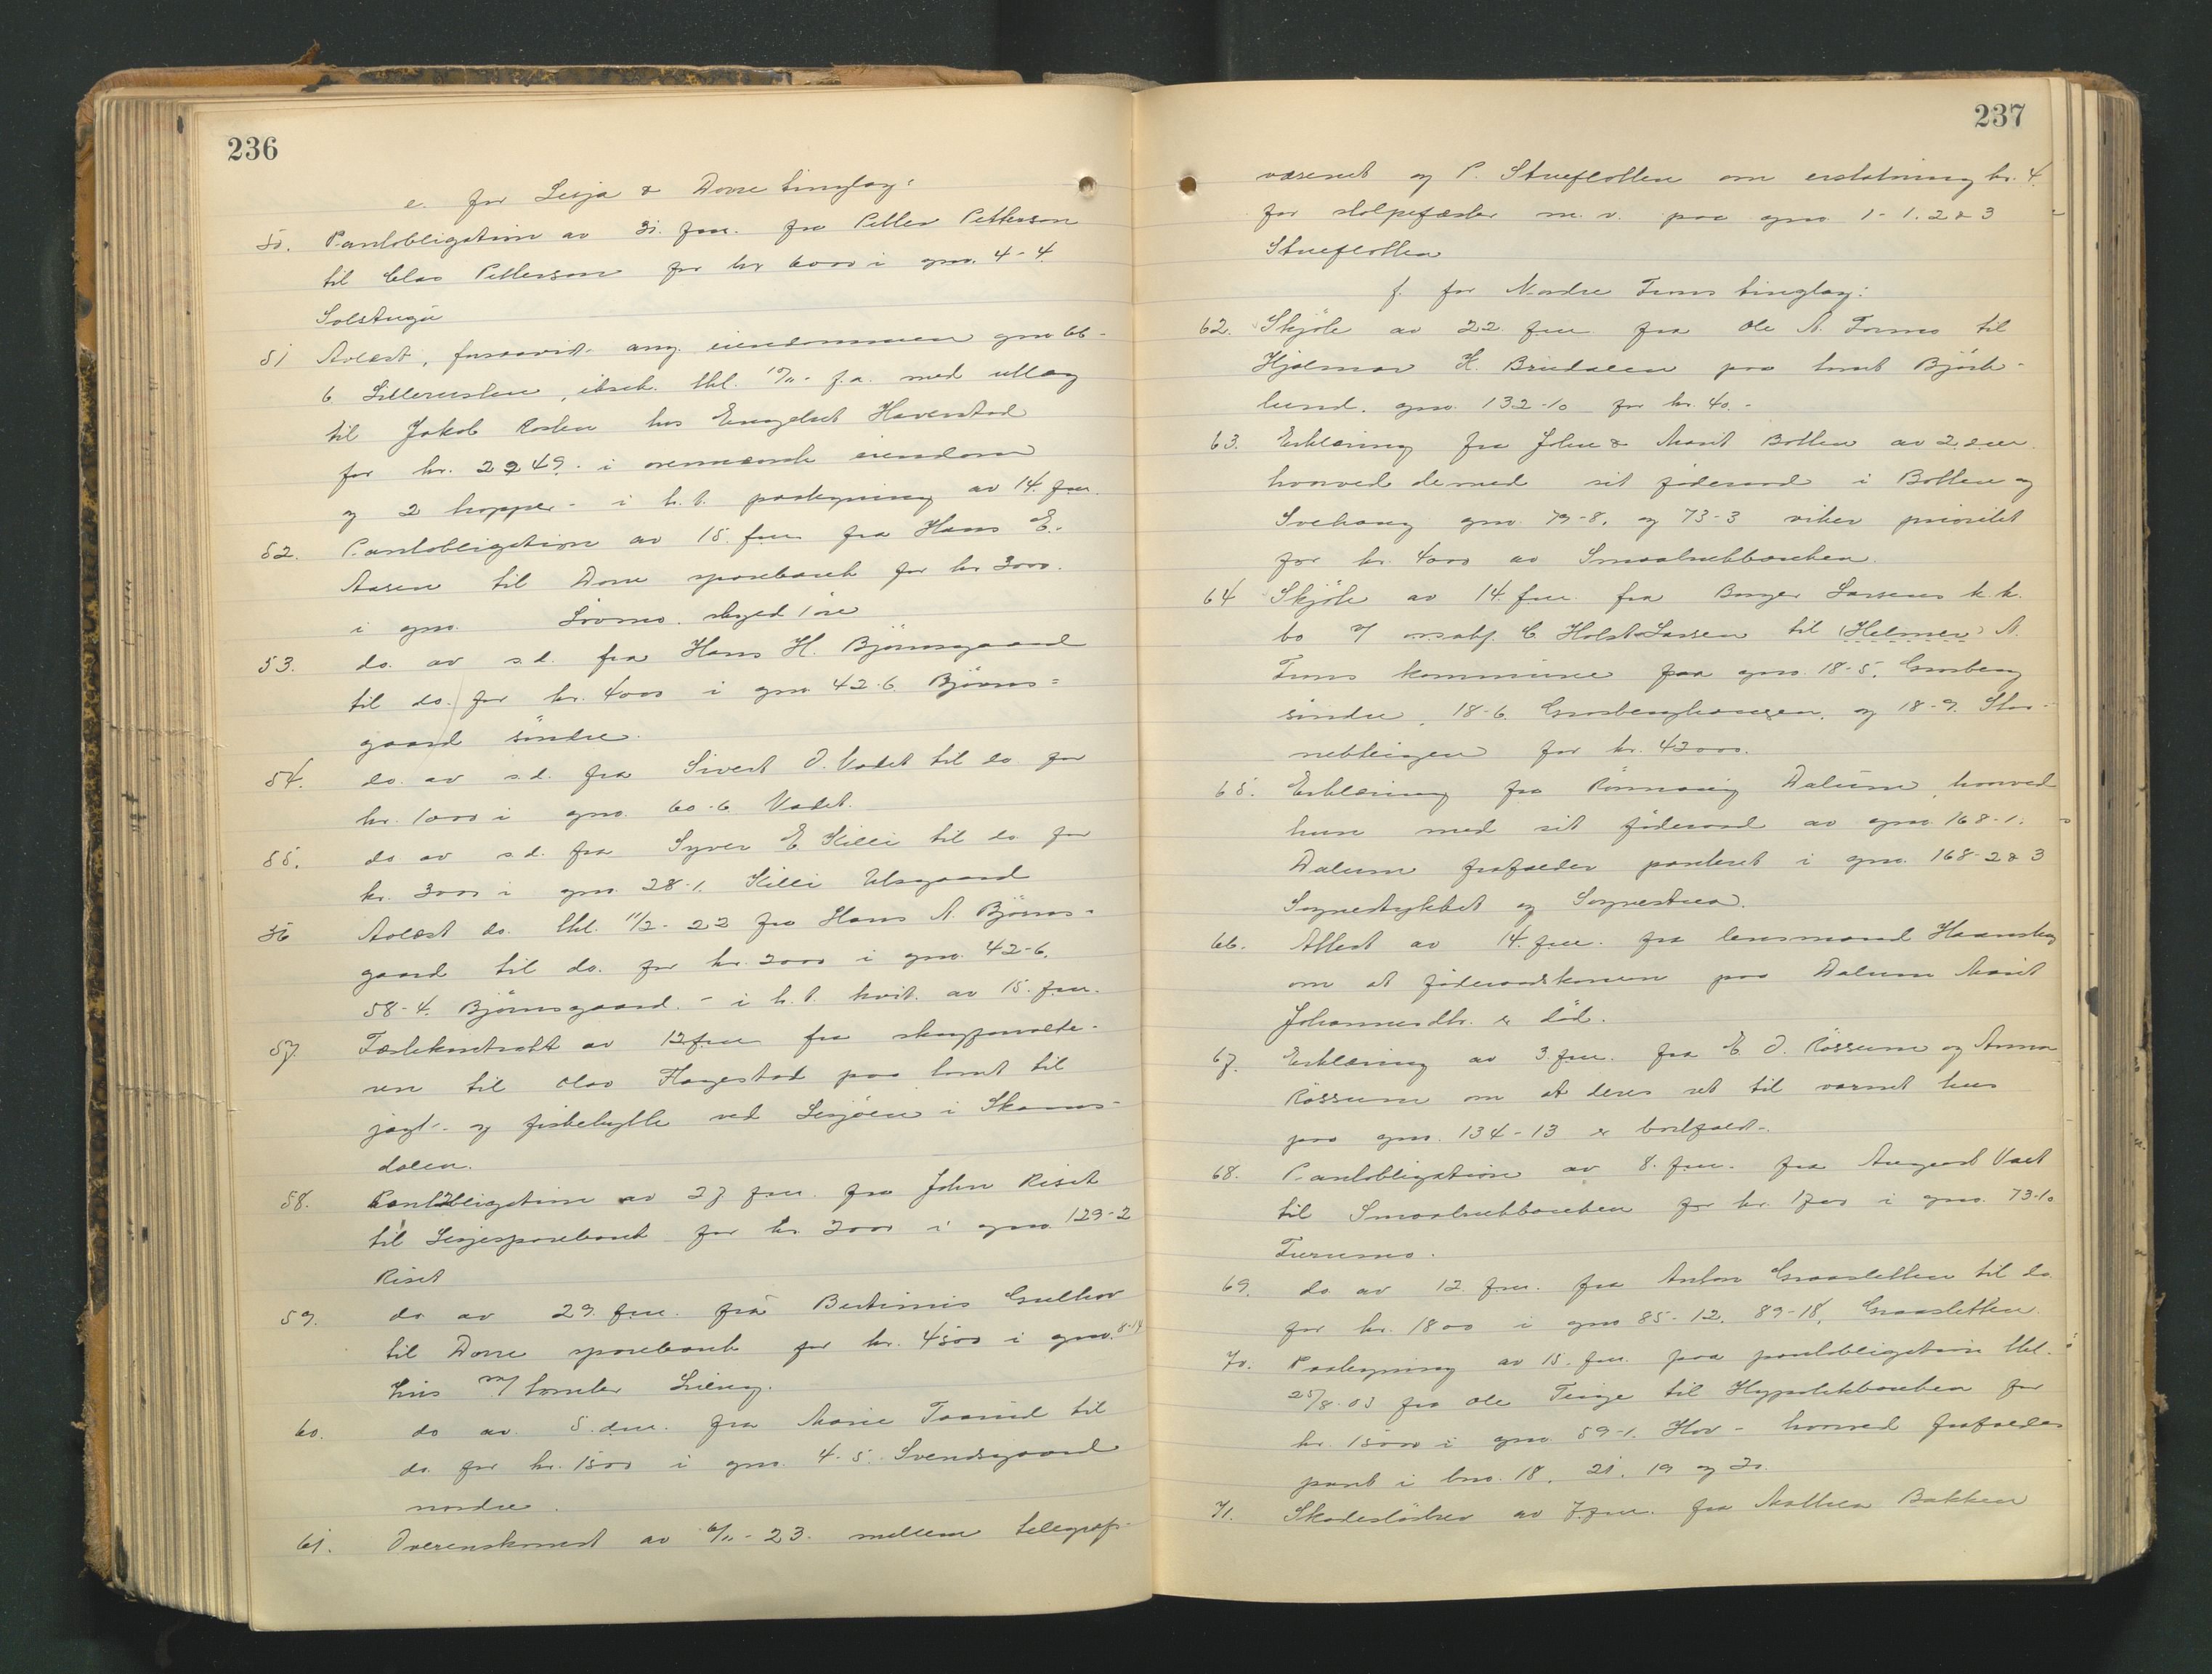 236
e. for Lesja & Dovre tinglag:
50. Pantobligation av 30. fm. fra Petter Petterson
til Clas Petterson for kr 6000 i gno. 4-4
Solstugu
51 Avlæst, forsaavidt ang. eiendommen gno 66-
6 Lillerusten, ekstr. tkl. 10/11- f.a. med utlæg
til Jakob Rosten hos Engelset Haverstad
for kr. 2249.- i ovennævnte eiendom
og 2 hopper - i h.t. paategning av 14. fm.
52. Pantobligation av 15. fm fra Hans E.
Aasen til Dovre sparebank for kr 3000.
i gno. Lovmo. skyld 1 øre
53. do. av s.d. fra Hans H. Bjørnsgaard
til do. for kr. 4000 i gno 42-6 Bjørns=
gaard søndre.
54. do. av s.d. fra Sivert O. Vadet til do for
kr. 1000 i gno. 60-6 Vadet.
55. do av s.d. fra Syver E Killi til do for
kr. 3000 i gno. 28-1. Killi Ulsgaard
56 Avlæst do. tkl. 11/2-22 fra Hans A. Bjørns-
gaard til do. for kr. 2000 i gno. 42-6.
58-4. Bjørnsgaard. - i h.t. kvit. av 15. fm.
57. Fæstekontrakt av 12 fm fra skogforvalte-
ren til Olav Flagestad paa tomt til
jagt- og fiskehytte ved Lesjøen i Skams-
dalen.
58. Pantobligation av 27 fm. fra John Riset
til Lesjesparebank for kr. 2000 i gno. 129-2
Riset
59. do av 29. fm. fra Bertinius Gulhov
til Dovre sparebank for kr. 4500 i gno. 8-14
Liis m/ tomter Lieng.
60. do av. 5. dm. fra Marie Taarud til
do. for kr. 1500 i gno. 4-5. Svendsgaard
nordre.
61. Overenskomst av 6/11-23. mellem telegraf-
237
væsenet og P. Stueflotten om erstatning kr. 4.
for stolpefæster m.v. paa gno 1-1. 2 & 3
Stueflotten
f. for Nordre Frons tinglag:
62. Skjøte av 22 fm. fra Ole A. Formo til
Hjalmar H. Brudalen paa tomt Björk-
lund. gno. 132-10 for kr. 40.-
63. Erklæring fra John & Marit Botten av 2. dm
hvorved de med sit føderaad i Botten og
Svehaug gno. 79-8. og 73-3 viker prioritet
for kr. 4000 av Smaabrukbanken
64 Skjøte av 14. fm. fra Borger Larsens k.k.
bo v/ C Holst-Larsen til (Helmer) N.
Frons kommune paa gno. 18-5. Grosberg
søndre, 18-6. Grosberghaugen. og 18-9. Stor-
nebteigen for kr. 42000.
65. Erklæring fra Rønnaug Dalum, hvorved
hun med sit føderaad av gno. 168-1.
Dalum frafalder panteret i gno. 168-2 & 3
Sognestykket og Sognestua.
66. Attest av 14. fm. fra lensmand
om at føderaadskonen paa Dalum Marit
Johannesdtr. er død.
67. Erklæring av 3. fm. fra E. O. Røssum og Anna
Røssum om at deres ret til varmt hus
paa gno. 134-13 er bortfaldt.
68. Pantobligation av 8. fm. fra August Vaet
til Smaabrukbanken for kr. 1700 i gno. 73-10
Furumo.
69. do av 12 fm. fra Anton Graasletten til do
for kr. 1800 i gno 85-12. 89-18. Graasletten.
70. Paategning av 15. fm. paa pantobligation tkl.
25/8-03 fra Ole Teige til Hypotekbanken for
kr. 1500 i gno. 59-1. Hov - hvorved frafaldes
pant i bno. 18. 21. 19 og 20.
71. Skadesløsbrev av 7. fm. fra Mathea Bakken